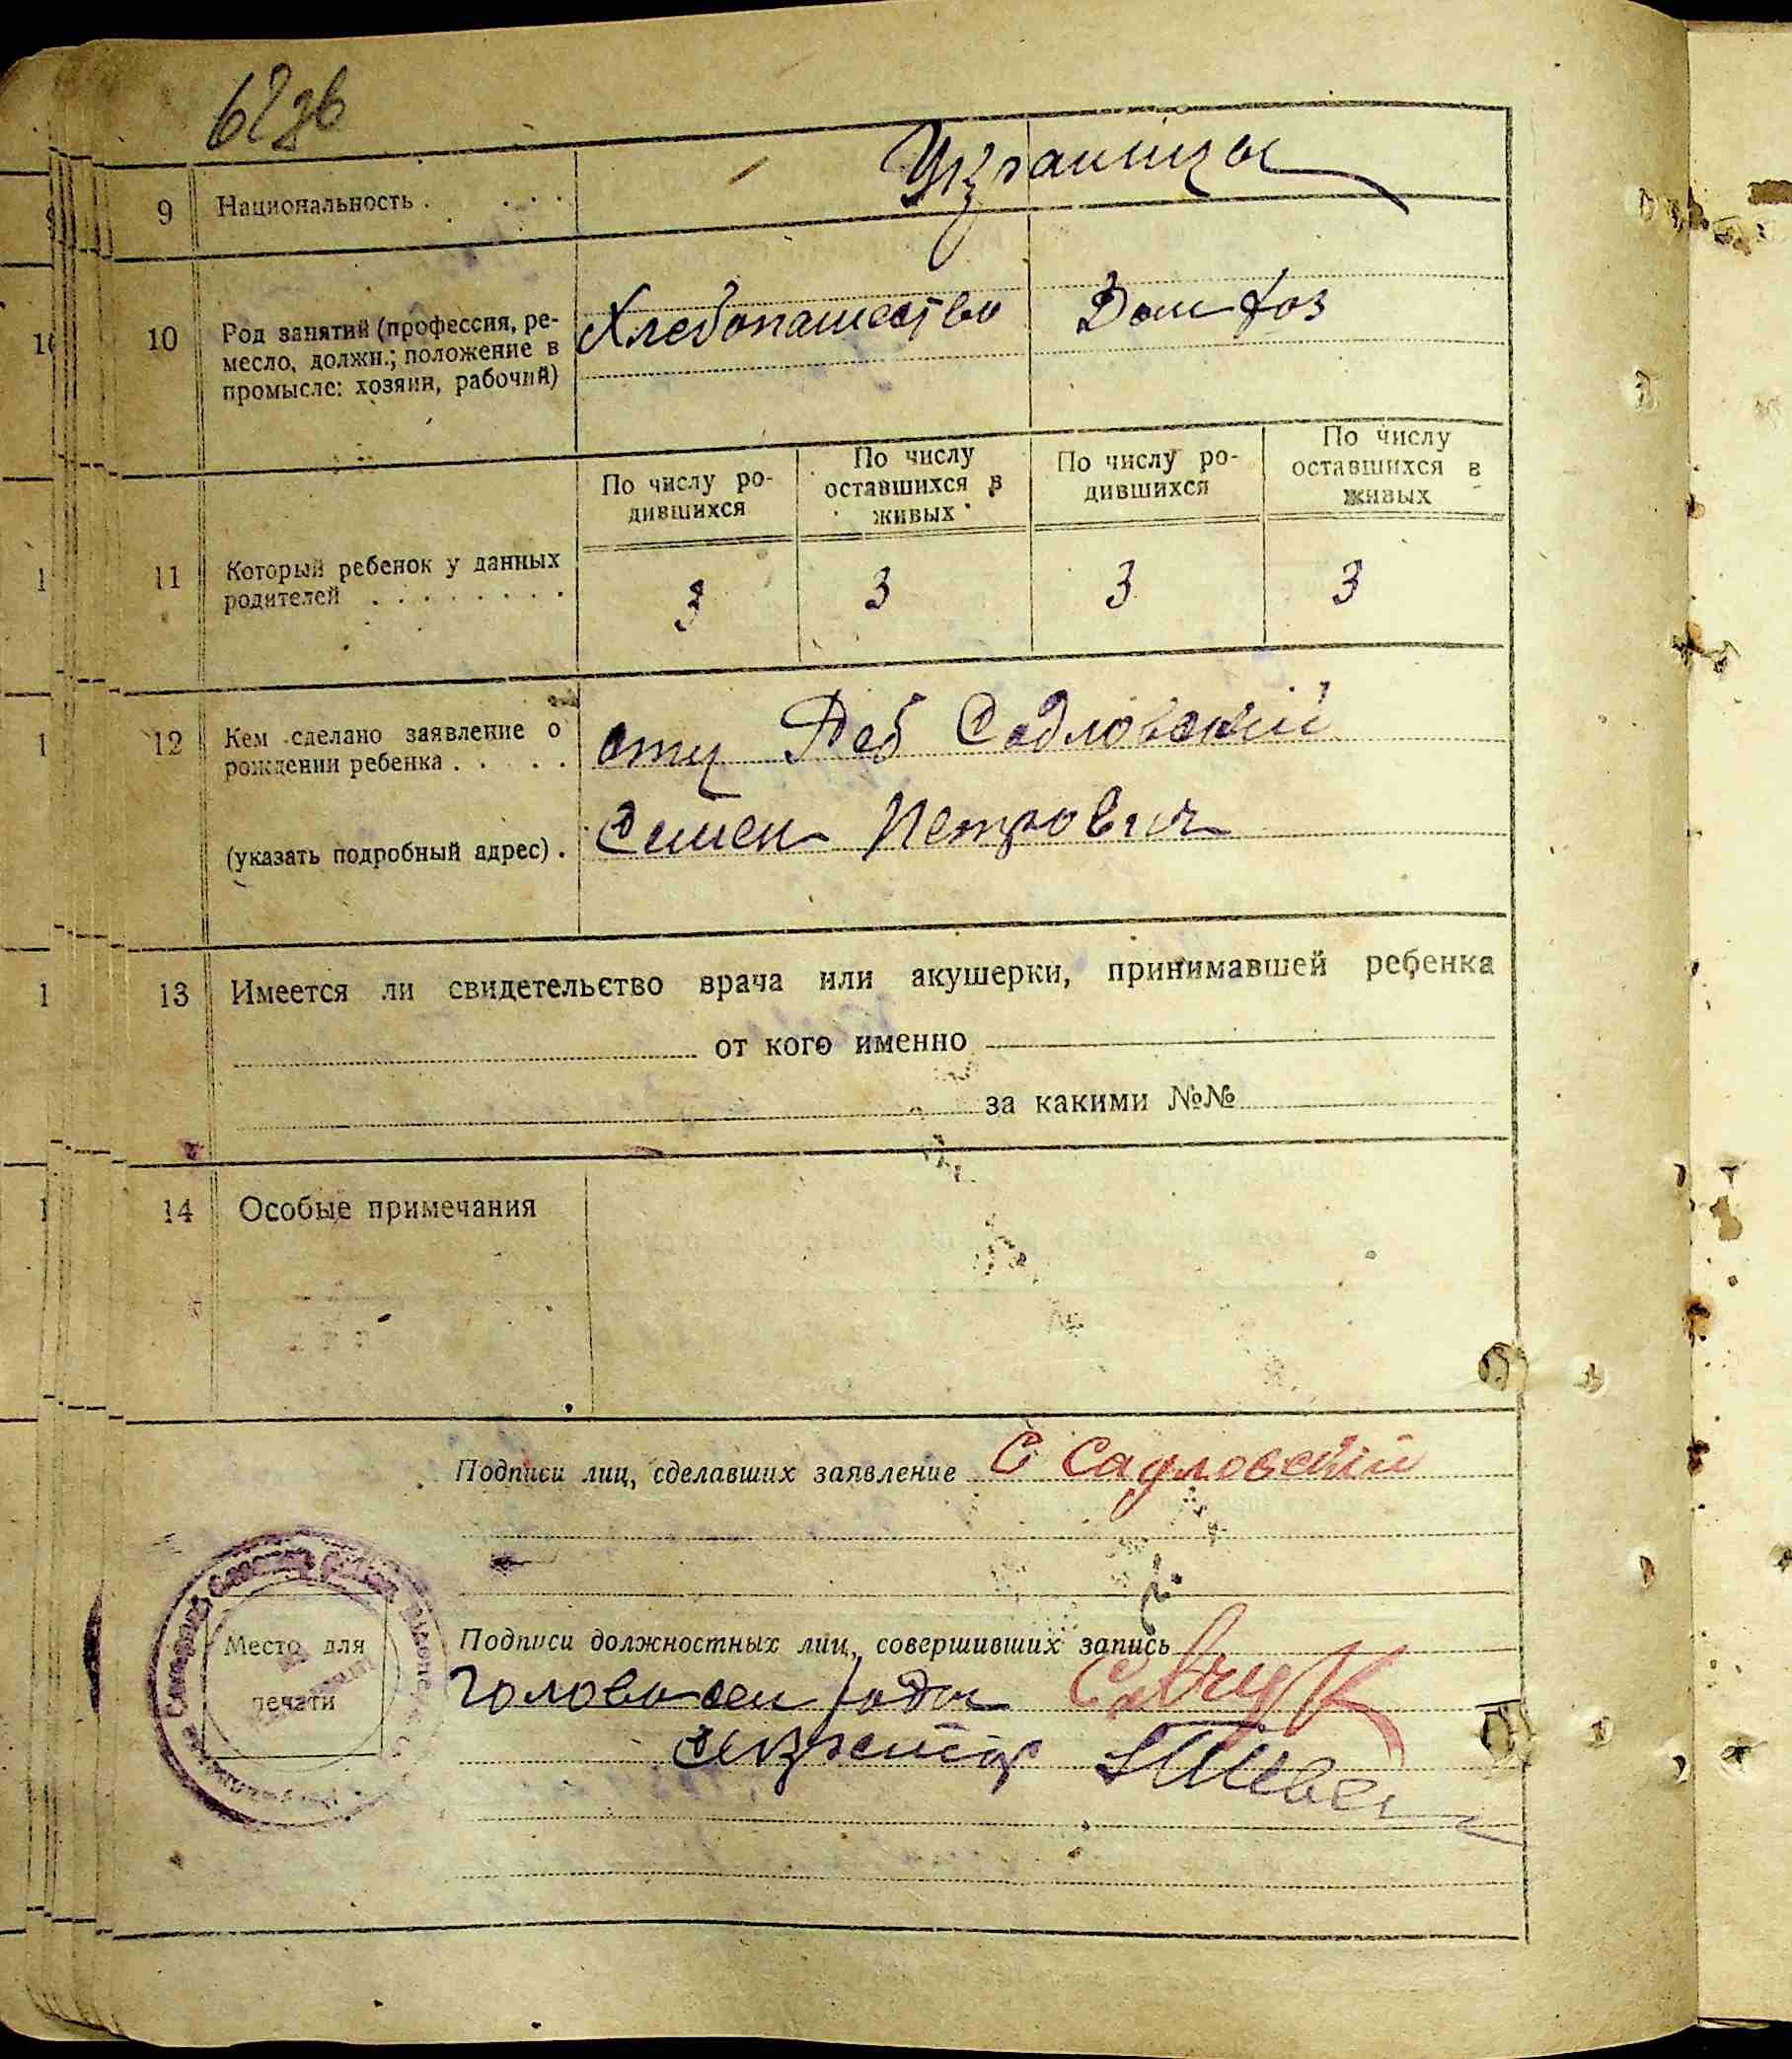 9 Национальность . . . . Украинцы
10 Род занятий (профессия, ре-
месло, должн.; положение в
промысле: хозяин, рабочий)
Хлебопашество Дом хоз
По числу ро-
дившихся
По числу
оставшихся в
живых
По числу ро-
дившихся
По числу
оставшихся в
живых
11 Который ребенок у данных
родителей . . . . . . . .
3 3 3 3
12 Кем сделано заявление о
рождении ребенка . . . .
отец Садловский
(указать подробный адрес) .
Семен Петрович
13 Имеется ли свидетельство врача или акушерки, принимавшей ребенка
от кого именно
за какими №№
14 Особые примечания
Подписи лиц, сделавших заявление С Садловский
Место для
печати
Подписи должностных лиц, совершивших запись
Голова сел ради Савчук
секретар